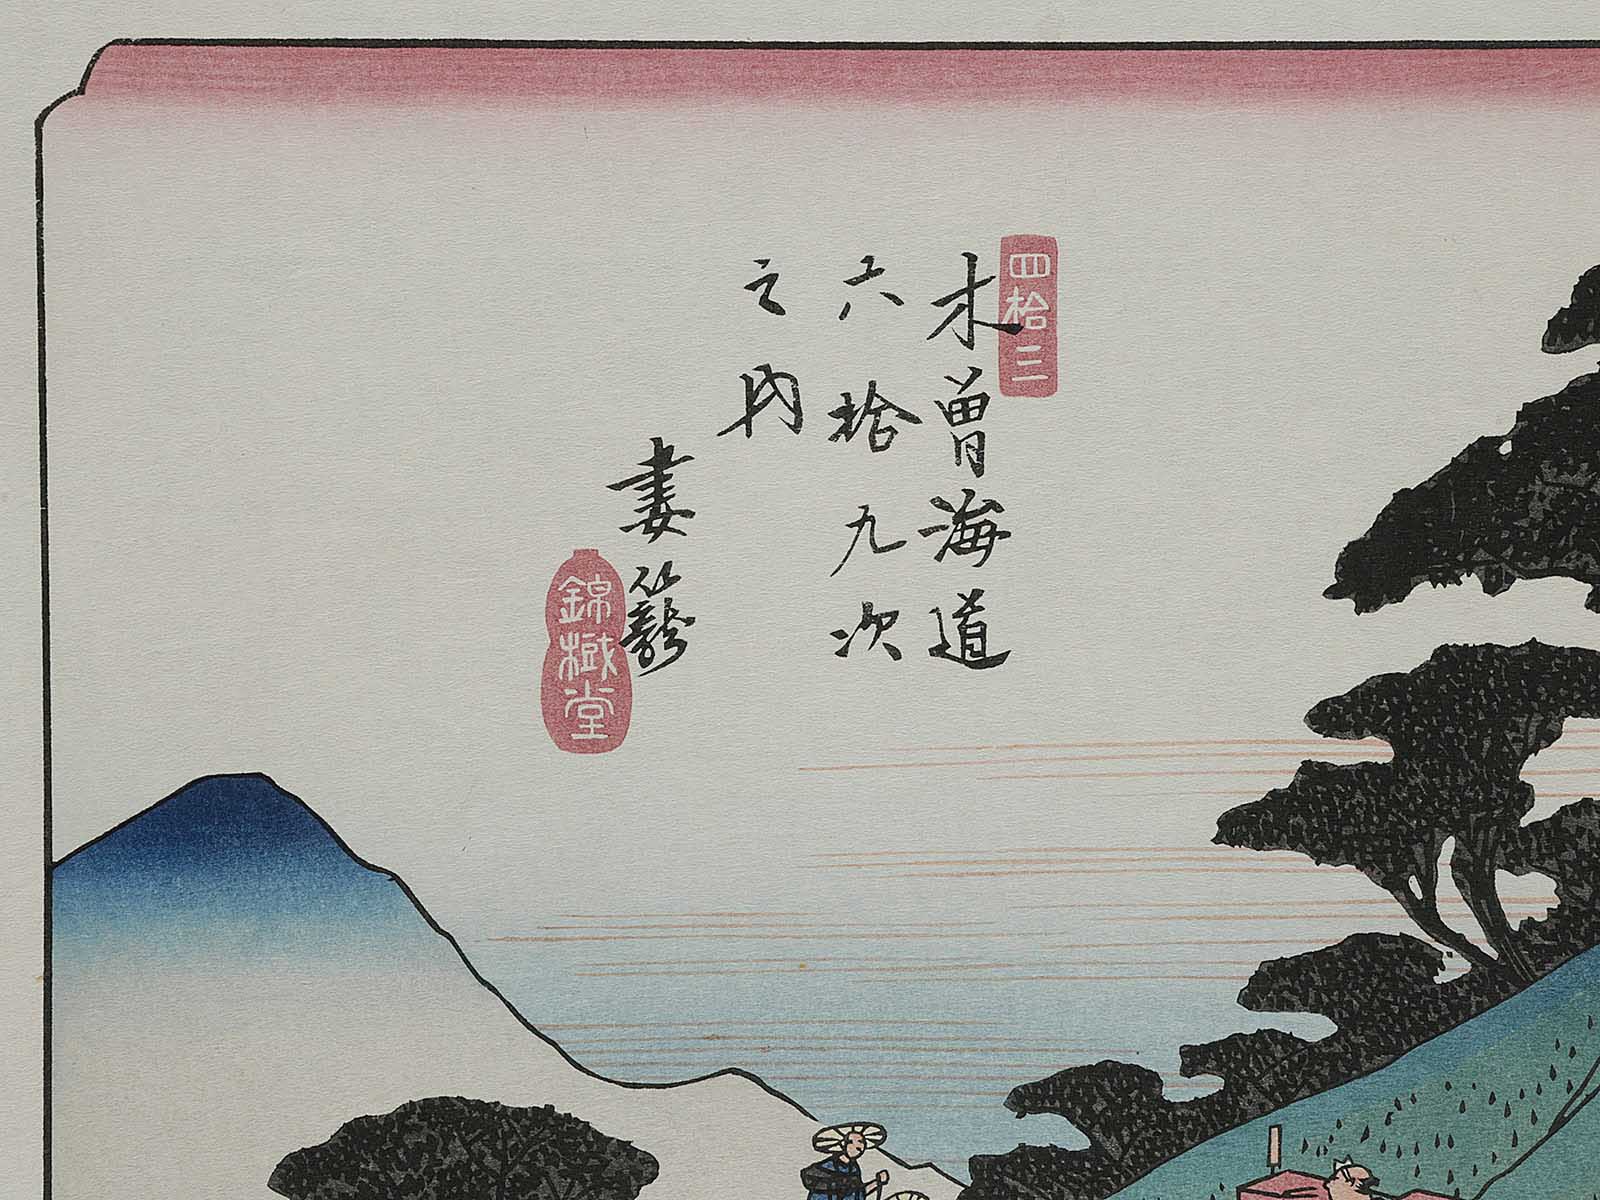 四拾三
木曽海道
六拾九次
之内
妻籠
錦樹堂